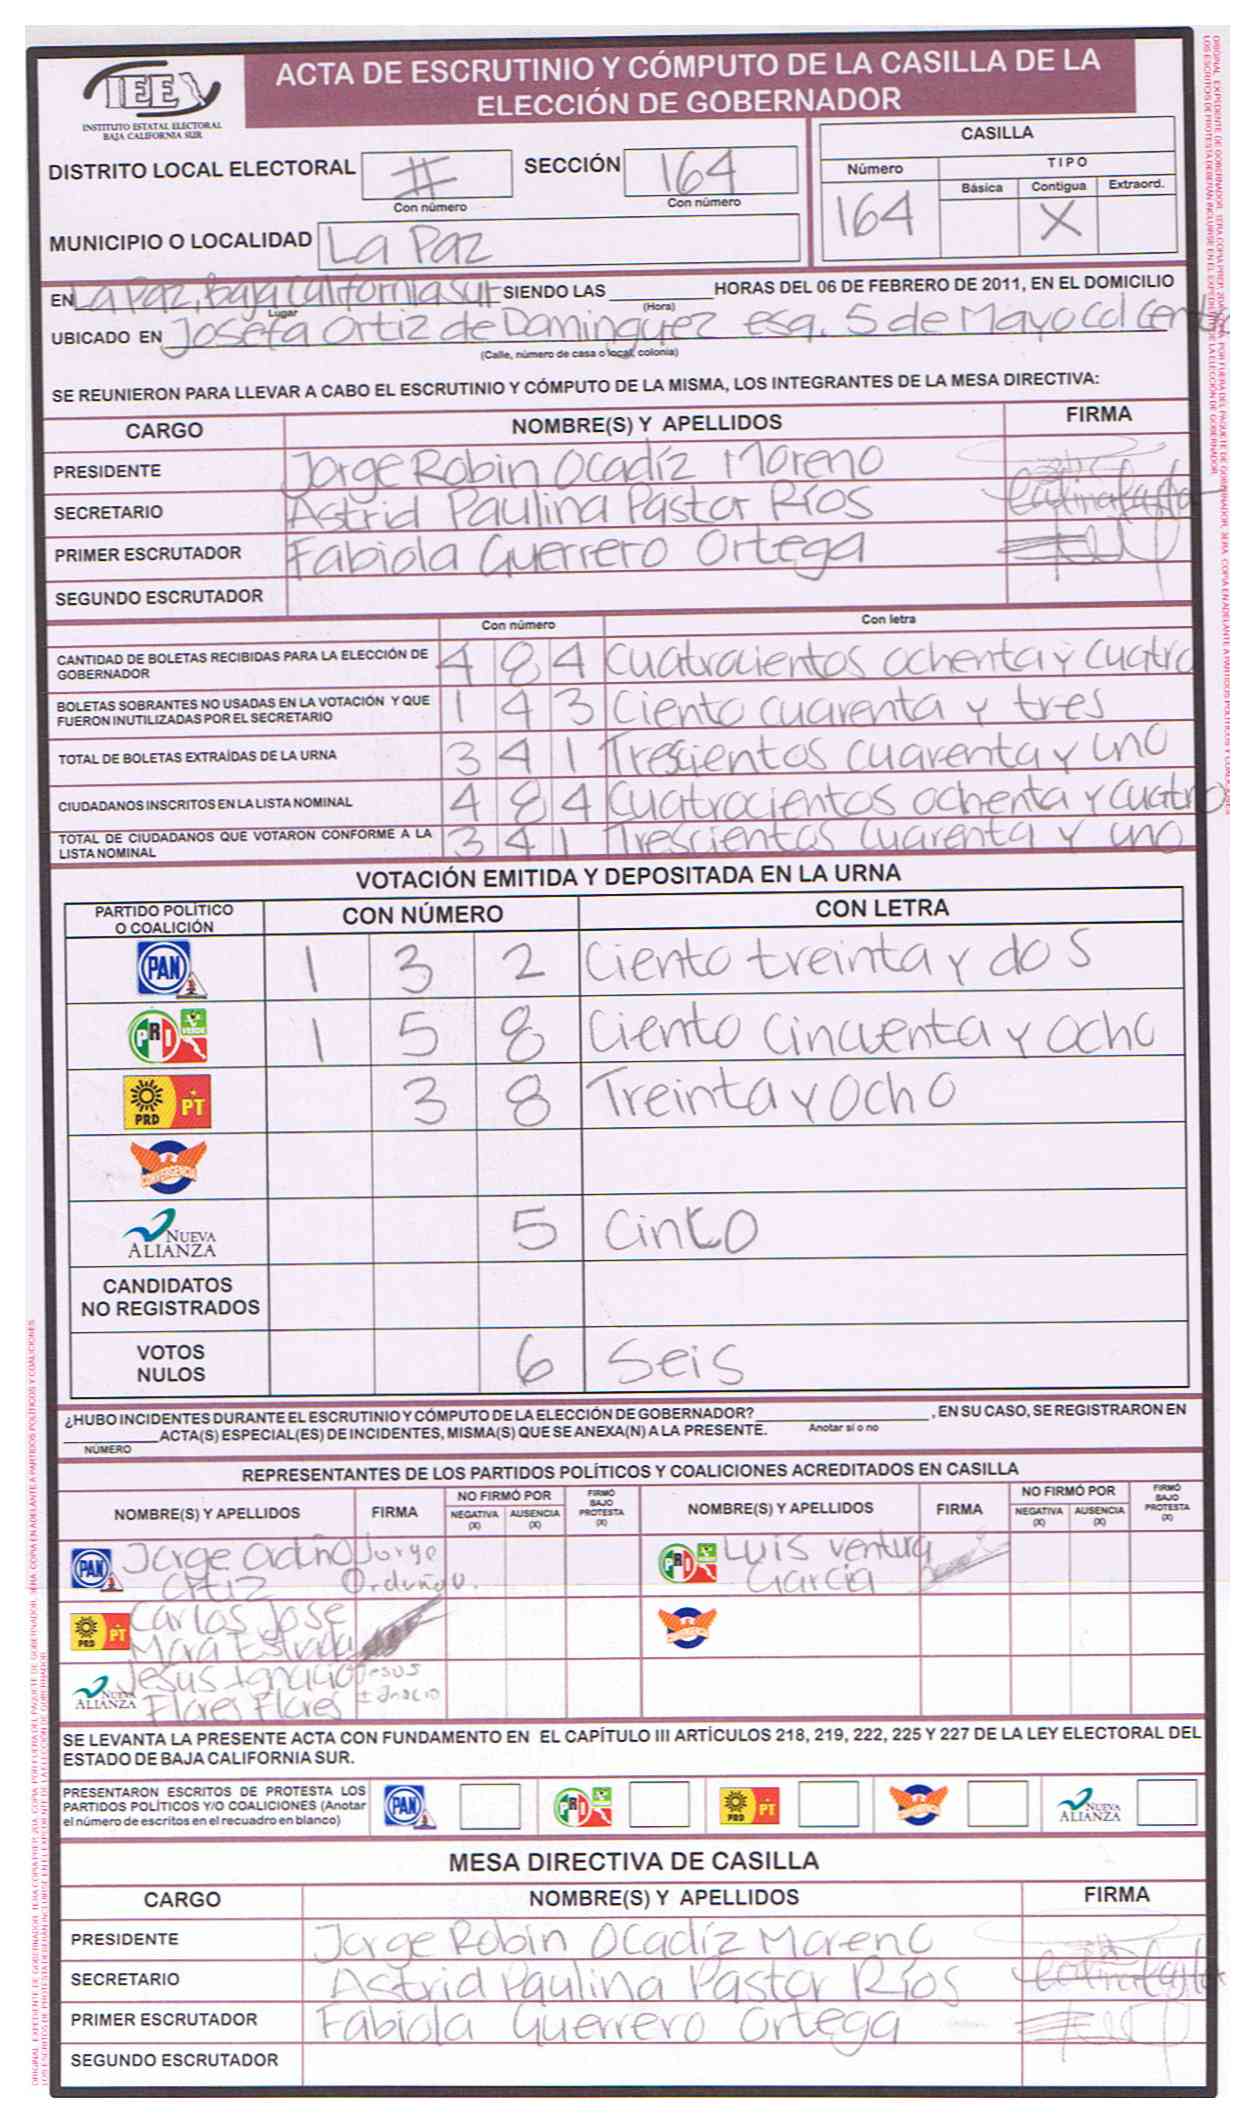 IEE
INSTITUTO ESTATAL ELECTORAL
BAJA CALIFORNIA SUR
ACTA DE ESCRUTINIO Y CÓMPUTO DE LA CASILLA DE LA
ELECCIÓN DE GOBERNADOR
DISTRITO LOCAL ELECTORAL
Con número
SECCIÓN 164
Con número
CASILLA
Número TIPO
Básica Contigua Extraord.
164 X
MUNICIPIO O LOCALIDAD La Paz
EN La Paz, Baja California Sur SIENDO LAS ________ HORAS DEL 06 DE FEBRERO DE 2011, EN EL DOMICILIO
Lugar (Hora)
UBICADO EN Josefa Ortiz de Dominguez esq. 5 de Mayo Col
(Calle, número de casa o local, colonia)
SE REUNIERON PARA LLEVAR A CABO EL ESCRUTINIO Y CÓMPUTO DE LA MISMA, LOS INTEGRANTES DE LA MESA DIRECTIVA:
CARGO NOMBRE(S) Y APELLIDOS FIRMA
PRESIDENTE Jorge Robin Ocadíz Moreno
SECRETARIO Astrid Paulina Pastor Ríos
PRIMER ESCRUTADOR Fabiola Guerrero Ortega
SEGUNDO ESCRUTADOR
Con número Con letra
CANTIDAD DE BOLETAS RECIBIDAS PARA LA ELECCIÓN DE
GOBERNADOR 4 8 4 Cuatrocientos ochenta y cuatro
BOLETAS SOBRANTES NO USADAS EN LA VOTACIÓN Y QUE
FUERON INUTILIZADAS POR EL SECRETARIO 1 4 3 Ciento cuarenta y tres
TOTAL DE BOLETAS EXTRAÍDAS DE LA URNA 3 4 1 Trescientos cuarenta y uno
CIUDADANOS INSCRITOS EN LA LISTA NOMINAL 4 8 4 Cuatrocientos ochenta y cuatro
TOTAL DE CIUDADANOS QUE VOTARON CONFORME A LA
LISTA NOMINAL 3 4 1 Trescientos cuarenta y uno
VOTACIÓN EMITIDA Y DEPOSITADA EN LA URNA
PARTIDO POLÍTICO
O COALICIÓN CON NÚMERO CON LETRA
PAN 1 3 2 Ciento treinta y dos
PRI VERDE 1 5 8 Ciento cincuenta y ocho
PRD PT 3 8 Treinta y ocho
CONVERGENCIA
NUEVA
ALIANZA 5 Cinco
CANDIDATOS
NO REGISTRADOS
VOTOS
NULOS 6 Seis
¿HUBO INCIDENTES DURANTE EL ESCRUTINIO Y CÓMPUTO DE LA ELECCIÓN DE GOBERNADOR? ________, EN SU CASO, SE REGISTRARON EN
________ ACTA(S) ESPECIAL(ES) DE INCIDENTES, MISMA(S) QUE SE ANEXA(N) A LA PRESENTE. Anotar sí o no
NÚMERO
REPRESENTANTES DE LOS PARTIDOS POLÍTICOS Y COALICIONES ACREDITADOS EN CASILLA
NOMBRE(S) Y APELLIDOS FIRMA NO FIRMÓ POR NEGATIVA (X) AUSENCIA (X) FIRMÓ BAJO PROTESTA (X) NOMBRE(S) Y APELLIDOS FIRMA NO FIRMÓ POR NEGATIVA (X) AUSENCIA (X) FIRMÓ BAJO PROTESTA (X)
PAN Jorge Ortiz Jorge Orduño.
PRI VERDE Luis Ventura García
PRD PT Carlos Jose Mara Estrada
NUEVA ALIANZA Jesus Ignacio Flores Flores Jesus Ignacio
SE LEVANTA LA PRESENTE ACTA CON FUNDAMENTO EN EL CAPÍTULO III ARTÍCULOS 218, 219, 222, 225 Y 227 DE LA LEY ELECTORAL DEL
ESTADO DE BAJA CALIFORNIA SUR.
PRESENTARON ESCRITOS DE PROTESTA LOS
PARTIDOS POLÍTICOS Y/O COALICIONES (Anotar
el número de escritos en el recuadro en blanco)
PAN PRI PRD PT NUEVA ALIANZA
MESA DIRECTIVA DE CASILLA
CARGO NOMBRE(S) Y APELLIDOS FIRMA
PRESIDENTE Jorge Robin Ocadíz Moreno
SECRETARIO Astrid Paulina Pastor Ríos
PRIMER ESCRUTADOR Fabiola Guerrero Ortega
SEGUNDO ESCRUTADOR